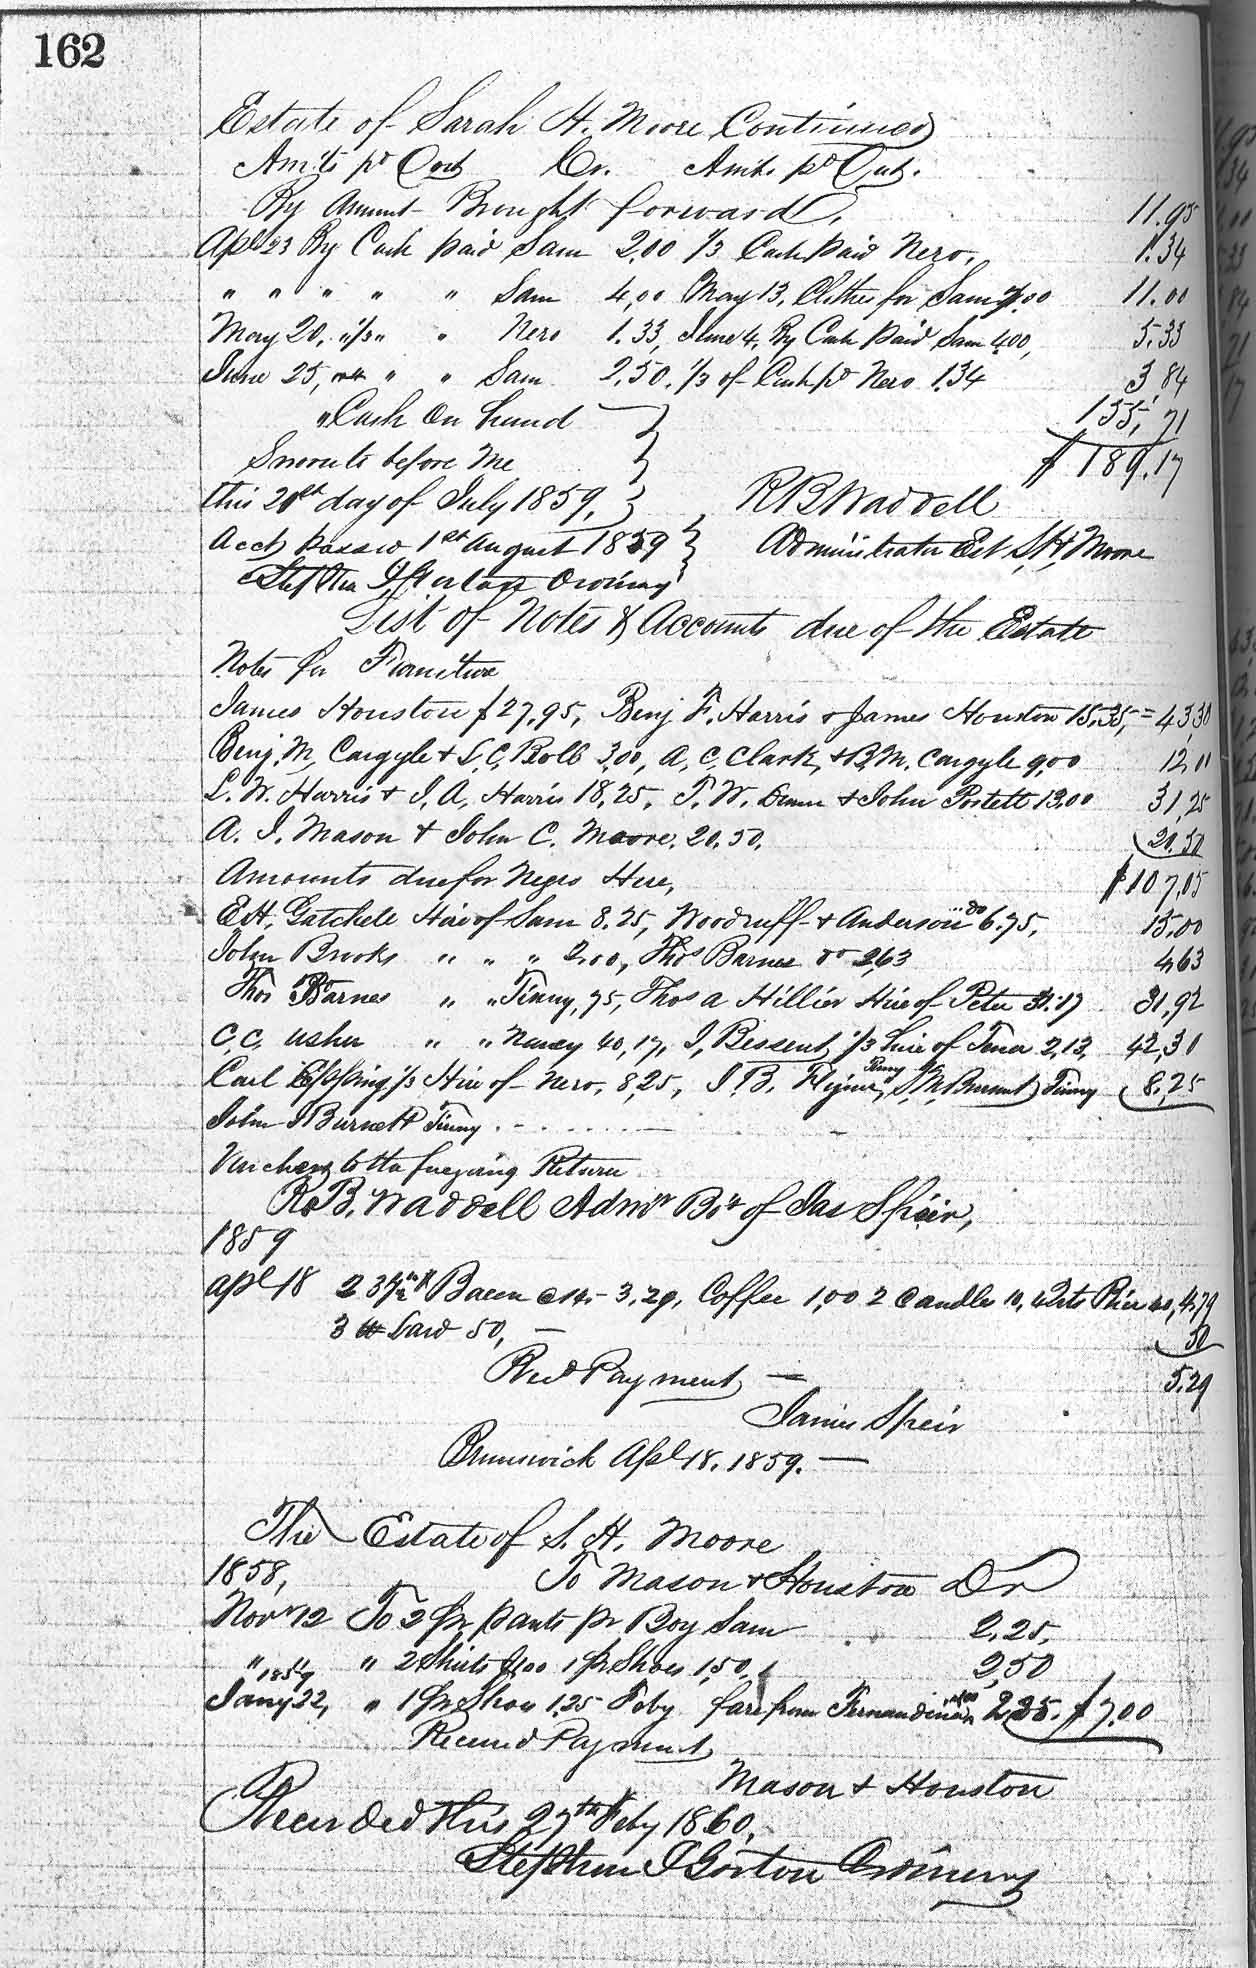 162
Estate of Sarah H. Moore Continued
Am'ts pd Out Cr. Amts. pd Out.
By Amount Brought forward, 11.95
Apl 23 By Cash paid Sam 2,00 1/3 Cash paid Nero, 1.34
" " " " " Sam 4,00 May 13, Clothes for Sam 7.00 11.00
May 20, " 1/3 " " Nero 1.33, June 4, By Cash paid Sam 4.00, 5.33
June 25, " " Sam 2,50, 1/3 of Cash pd Nero 1.34 3,84
" Cash On hand 155,71
Sworn to before Me $189.17
this 20th day of July 1859, R B Waddell
Acct passed 1st August 1859 Administrator Est S, H, Moore
Stephen J Ordinary
List of Notes & Accounts due of the Estate
Notes for Furniture
James Houston $27,95, Benj F. Harris & James Houston 15,35, = 43,30
Benj, M, Cargyle & L, C, Bolb 3,00, A, C, Clark, & B, M, Cargyle 9,00 12,00
L. W. Harris & J, A, Harris 18,25, T. W, & John Postell 13,00 31,25
A. J. Mason & John C. Moore, 20,50, 20.50
Amounts due for Negro Hire, $107,05
E H, Gatchell Hire of Sam 8.25, Woodruff & Anderson " do 6.75, 15,00
John Brooks " " " 2,00, Thos Barnes do 2,63 4,63
Thos Barnes " " Tinny, 75, Thos A Hillier Hire of Peter 31.17 31,92
C, C, Usher " " Nancy 40,17, J, Bessent, 1/3 hire of 2,13, 42,30
Carl Epping, 1/3 Hire of Nero, 8,25, J. B. Tinny 8,25
John J Burnett Tinny
Vouchers to the foregoing Return
R. B. Waddell Adm'r Bo't of Jas Speir,
1859
Apl 18 23 1/2 lb Bacon @ 14 - 3.29, Coffee 1,00 2 Candles 10, 4 Qts Rice 40, 4,79
3 lb Lard 50, 50
Recd Payment 5.29
James Speir
Brunswick Apl 18, 1859.
The Estate of S. H. Moore
1858, To Mason & Houston Dr
Novr 12 To 2 pr pants pr Boy Sam 2,25,
" " 2 Shirts 1,00 1 pr Shoes 1,50, 2,50
1859
Jany 22, " 1 pr Shoes 1,25 Feby fare from Fernandina 1,00 2,25. $7.00
Received Payment
Mason & Houston
Recorded this 27th Feby 1860,
Stephen J Gorton Ordinary